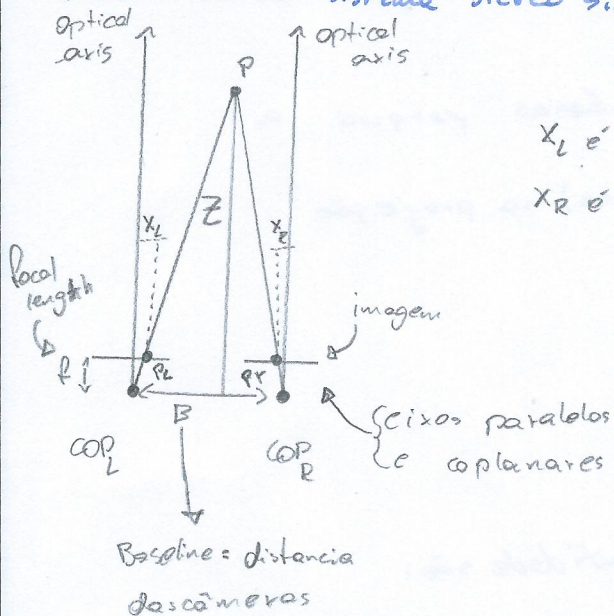 optical
axis
optical
axis
P
X_L é
X_R é
Z
X_L
X_R
focal
length
imagem
f
PL
Pr
B
COP_L
COP_R
eixos paralelos
e coplanares
Baseline = distancia
das câmeras